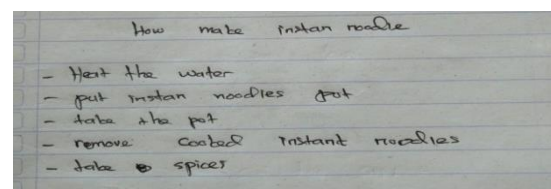 How make instan noodle
- Heat the water
- put instan noodles pot
- take the pot
- remove cooked instant noodles
- take spices